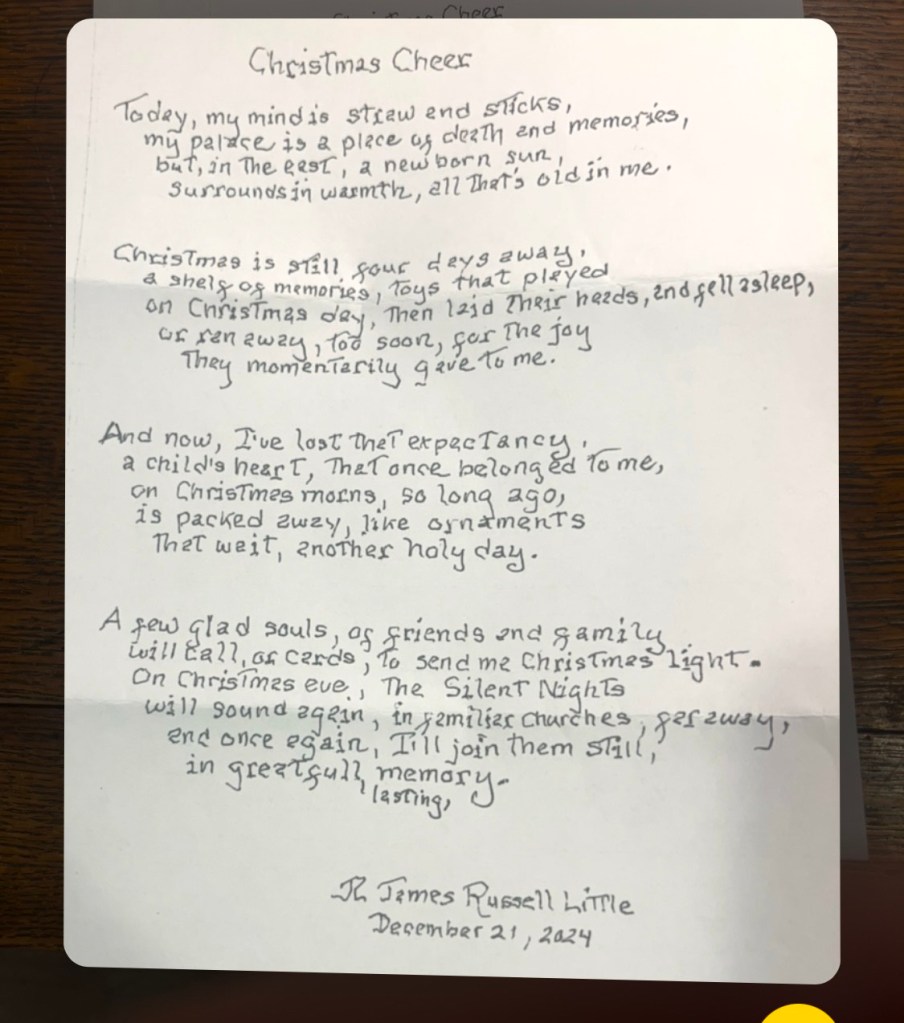 Christmas Cheer
Today, my mind is straw and sticks,
my palace is a place of death and memories,
but, in the east, a new born sun,
surrounds in warmth, all that's old in me.
Christmas is still four days away,
a shelf of memories, toys that played
on Christmas day, then laid their heads, and fell asleep,
or ran away, too soon, for the joy
they momentarily gave to me.
And now, I've lost that expectancy,
a child's heart, that once belonged to me,
on Christmas morns, so long ago,
is packed away, like ornaments
that wait, another holy day.
A few glad souls, of friends and family
will call, or cards, to send me Christmas light.
On Christmas eve, The Silent Nights
will sound again, in familiar churches, far away,
and once again, I'll join them still,
in greatfull, memory.
lasting,
James Russell Little
December 21, 2024